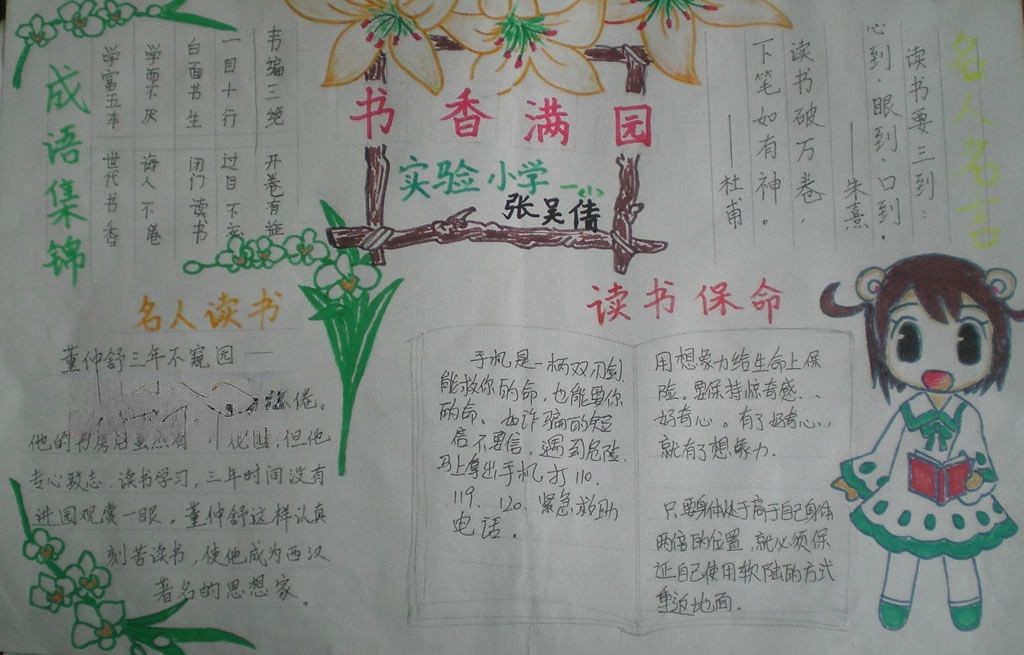 书香满园
实验小学一(5)
张吴倩
成语集锦
韦编三绝 开卷有益
一目十行 过目不忘
白面书生 闭门读书
学而不厌 诲人不倦
学富五车 世代书香
名人名言
读书要三到：
心到·眼到·口到。
——朱熹
读书破万卷，
下笔如有神。
——杜甫
名人读书
董仲舒三年不窥园——
倦。
他的书房后虽然有 花园，但他
专心致志，读书学习，三年时间没有
进园观赏一眼。董仲舒这样认真
刻苦读书，使他成为西汉
著名的思想家。
读书保命
手机是一柄双刃剑，
能救你的命，也能要你
的命。 诈骗的短
信不要信，遇到危险
马上拿出手机打110.
119. 120. 紧急救助
电话。
用想象力给生命上保
险。要保持惊奇感、、
好奇心。有了好奇心、、
就有了想象力.
只要身体处于高于自己身体
两倍的位置，就必须保
证自己使用软陆的方式
重返地面.